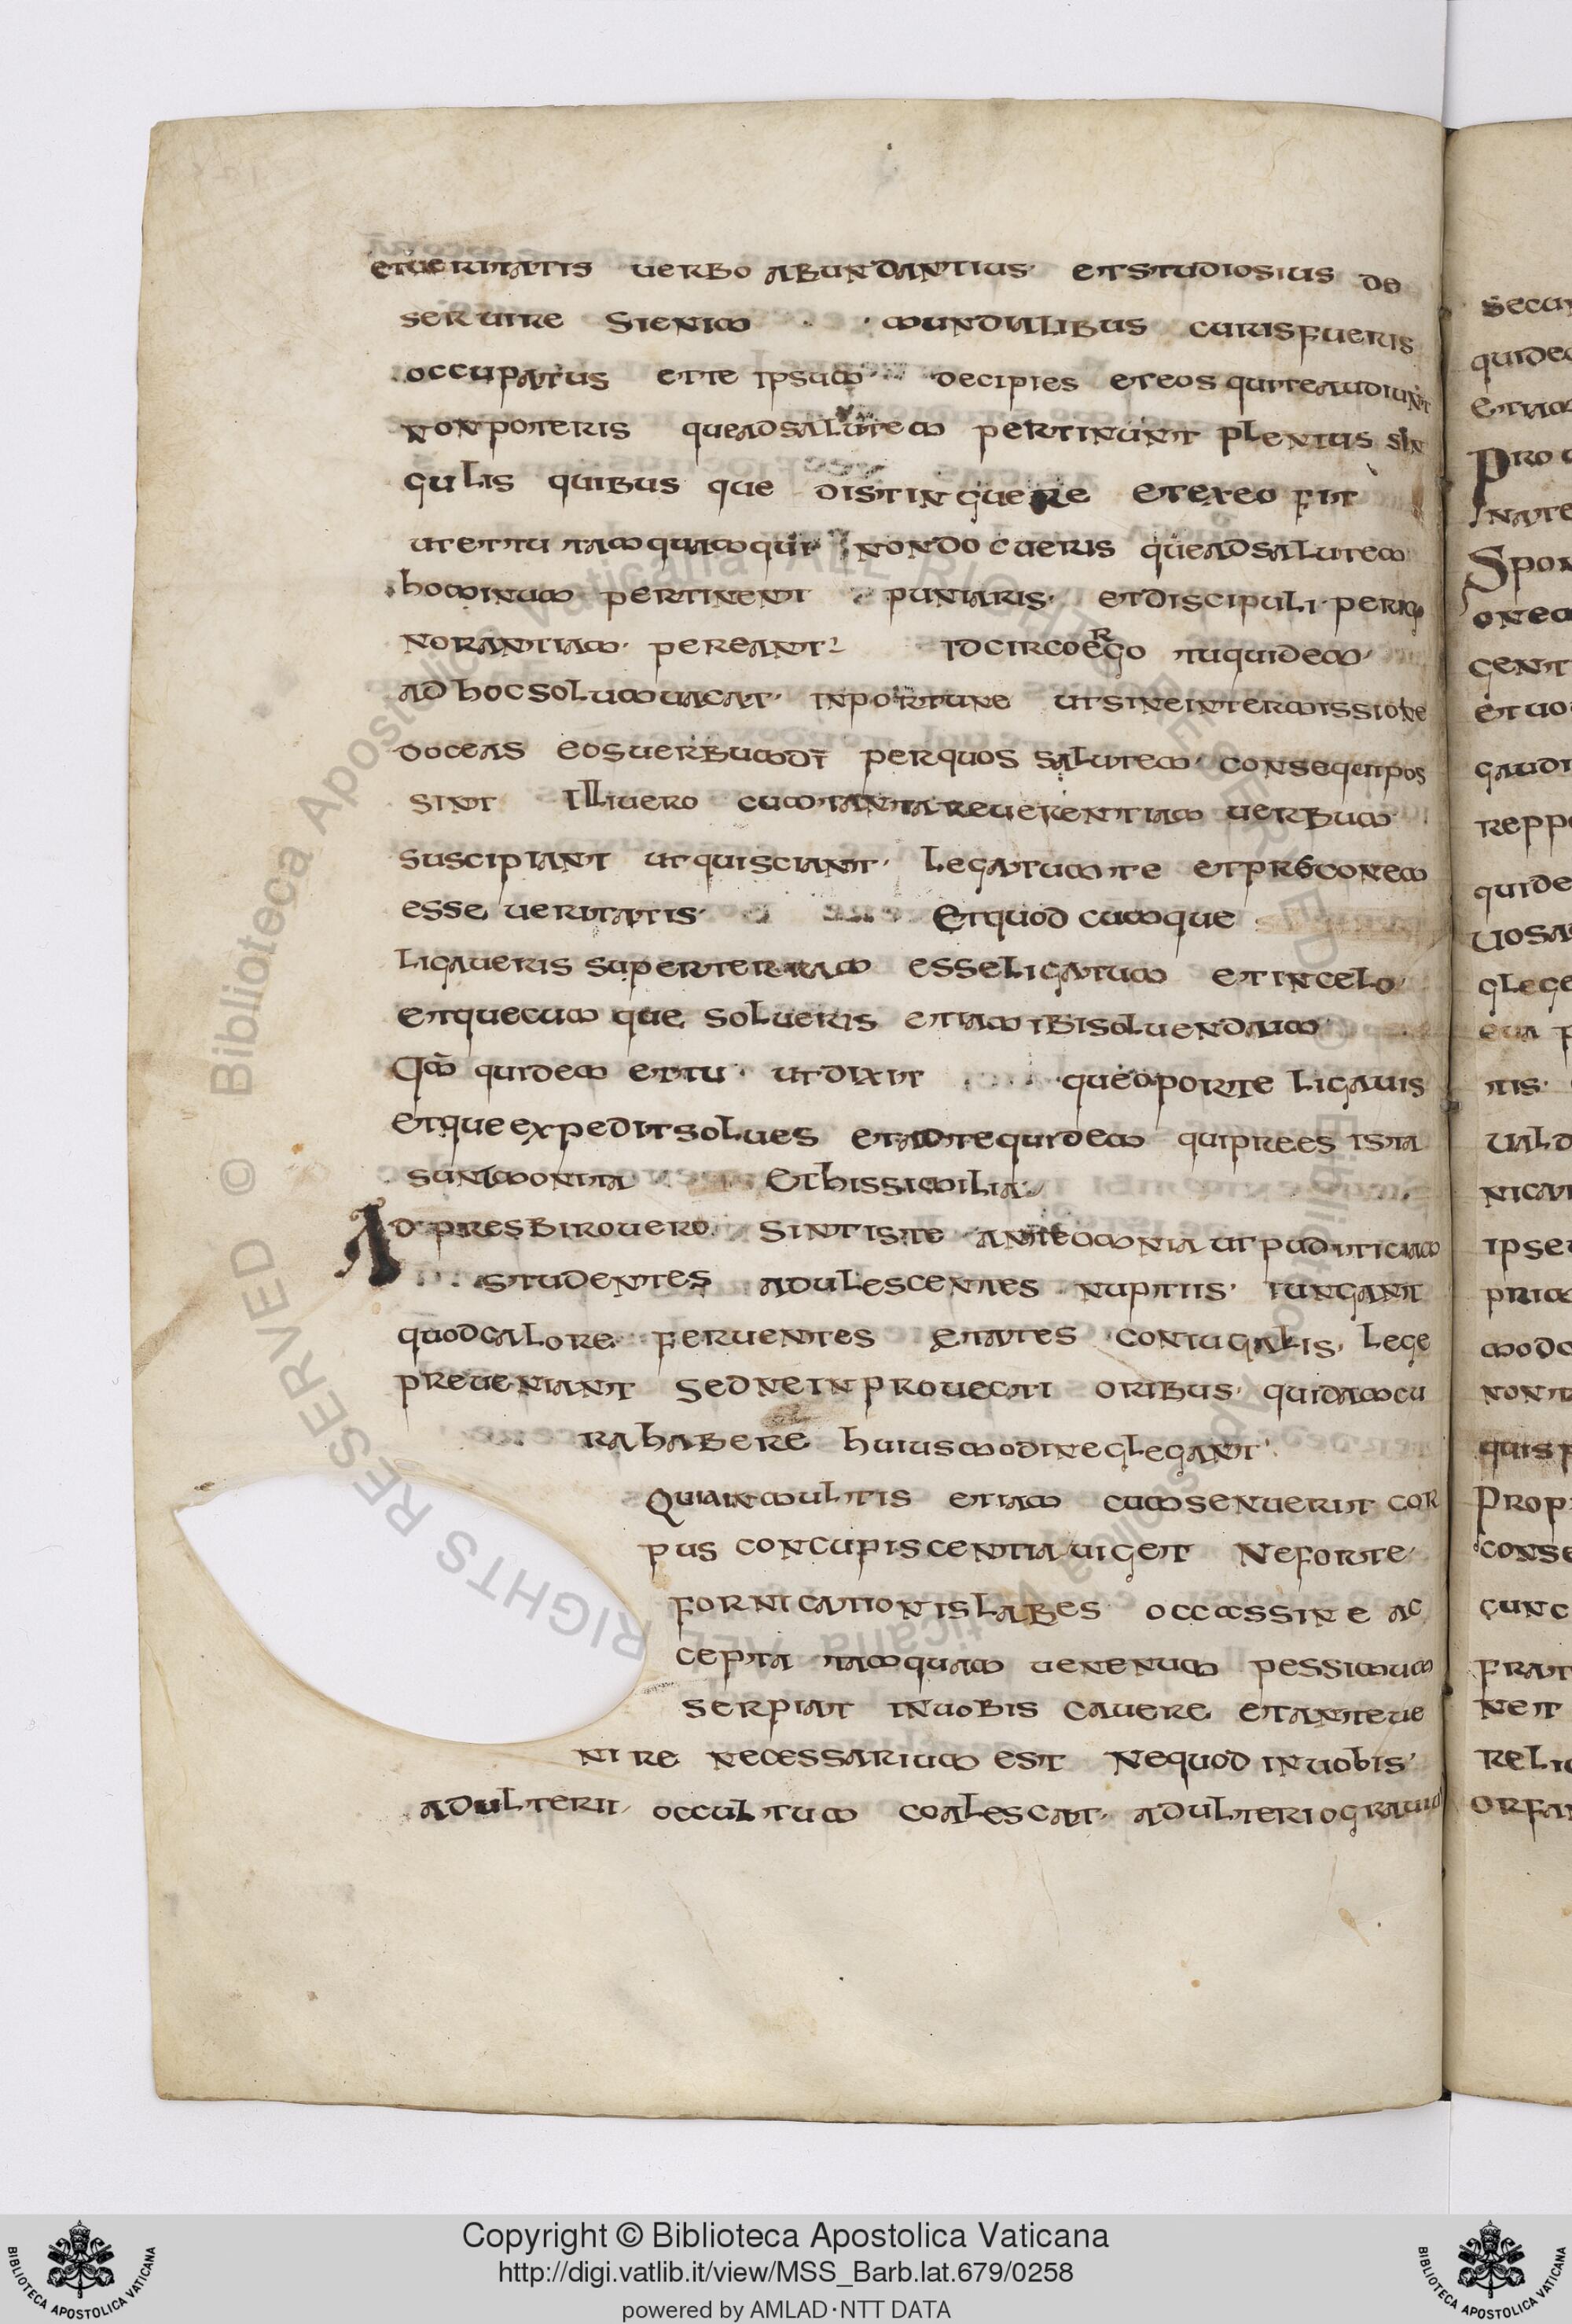 etueritatis uerbo abundantius· etstudiosius de
seruire sienim mundialibus curisfueris
occupatus ette ipsum· decipies eteos quiteaudiunt
nonpoteris queadsalutem pertinunt plenius sin
gulis quibus que distinguere etexeo fiit
utettu tamquamqui nondocueris queadsalutem
hominum pertinent puniaris· etdiscipuli·perig
norantiam· pereant· Idcircoergo tuquidem·
adhocsolumuacat· inportune utsineintermissione
doceas eosuerbumdī perquos salutem· consequipos
sint Illiuero cumtantareuerentiam uerbum
suscipiant utquisciant· legatumte etpręconem
esse ueritatis· Etquod cumque
ligaueris superterram esseligatum etincelo·
etquecum que solueris etiamibisoluendum
Qm̄ quidem ettu· utdixit queoporte ligauis
etqueexpeditsolues etadtequidem quiprees ista
suntmonita Ethissimilia·
Ad presbirouero Sintiste anteomnia utpuditiciam
studentes adulescentes nuptiis· iungant
quodcalore feruentes ętates coniugalis· lege
preueniant Sedneinprouecti oribus· quidamcu
rahabere huiusmodineglegant·
Quiainmultis etiam cumsenuerit cor
pus concupiscentiauiget Neforte·
fornicationislabes occæssine ac
cepta tamquam uenenum pessimum
serpiat inuobis cauere etanteue
nire necessarium est Nequod inuobis·
adulterii· occultum coalescat· adulteriograuid
secun
quide
etiam
Pro
nate
Spon
onem
gent
etuo
gaudi
repp
quide
uosa
glege
eua p
tis·
uald
nicar
ipset
prim
modo
nont
quisf
Prop
conse
cunc
frat
net
reli
orfa
© Biblioteca Apostolica Vaticana ALL RIGHTS RESERVED © Biblioteca Apostolica Vaticana ALL RIGHTS RESERVED
BIBLIOTECA APOSTOLICA VATICANA
Copyright © Biblioteca Apostolica Vaticana
http://digi.vatlib.it/view/MSS_Barb.lat.679/0258
powered by AMLAD·NTT DATA
BIBLIOTECA APOSTOLICA VATICANA